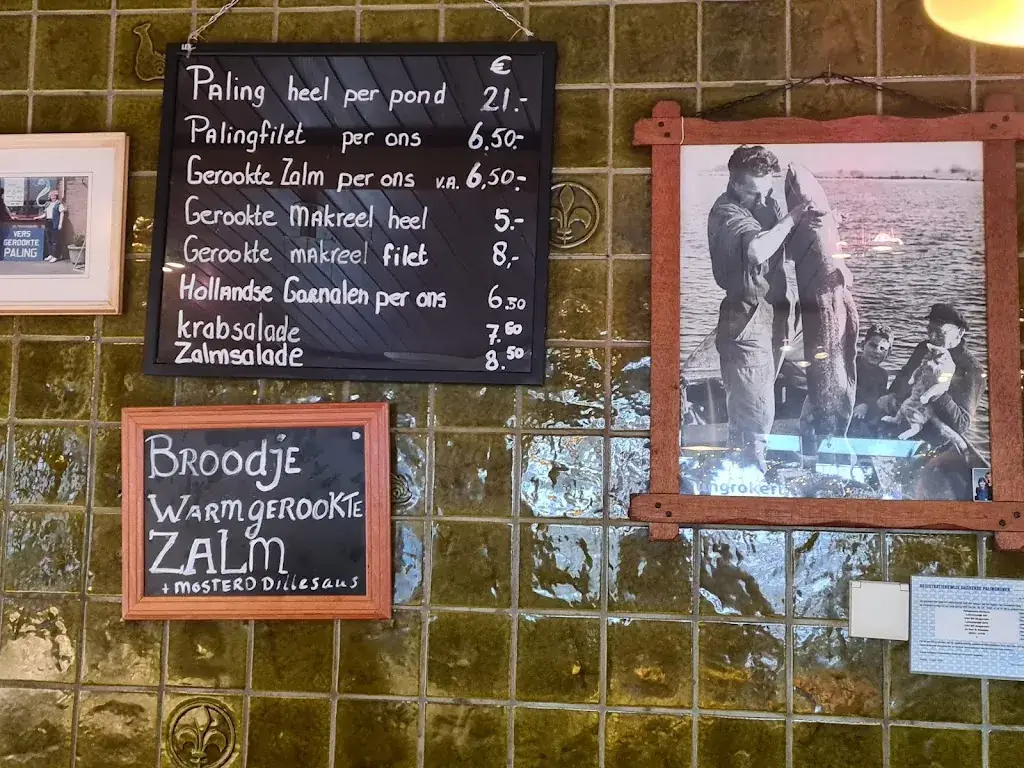 €
Paling heel per pond 21.-
Palingfilet per ons 6,50.-
Gerookte Zalm per ons v.a. 6,50.-
Gerookte Makreel heel 5.-
Gerookte makreel filet 8,-
Hollandse Garnalen per ons 6.50
krabsalade 7.50
Zalmsalade 8.50
VERS
GEROOKTE
PALING
BROODJE
WARMGEROOKTE
ZALM
+ MOSTERD Dillesaus